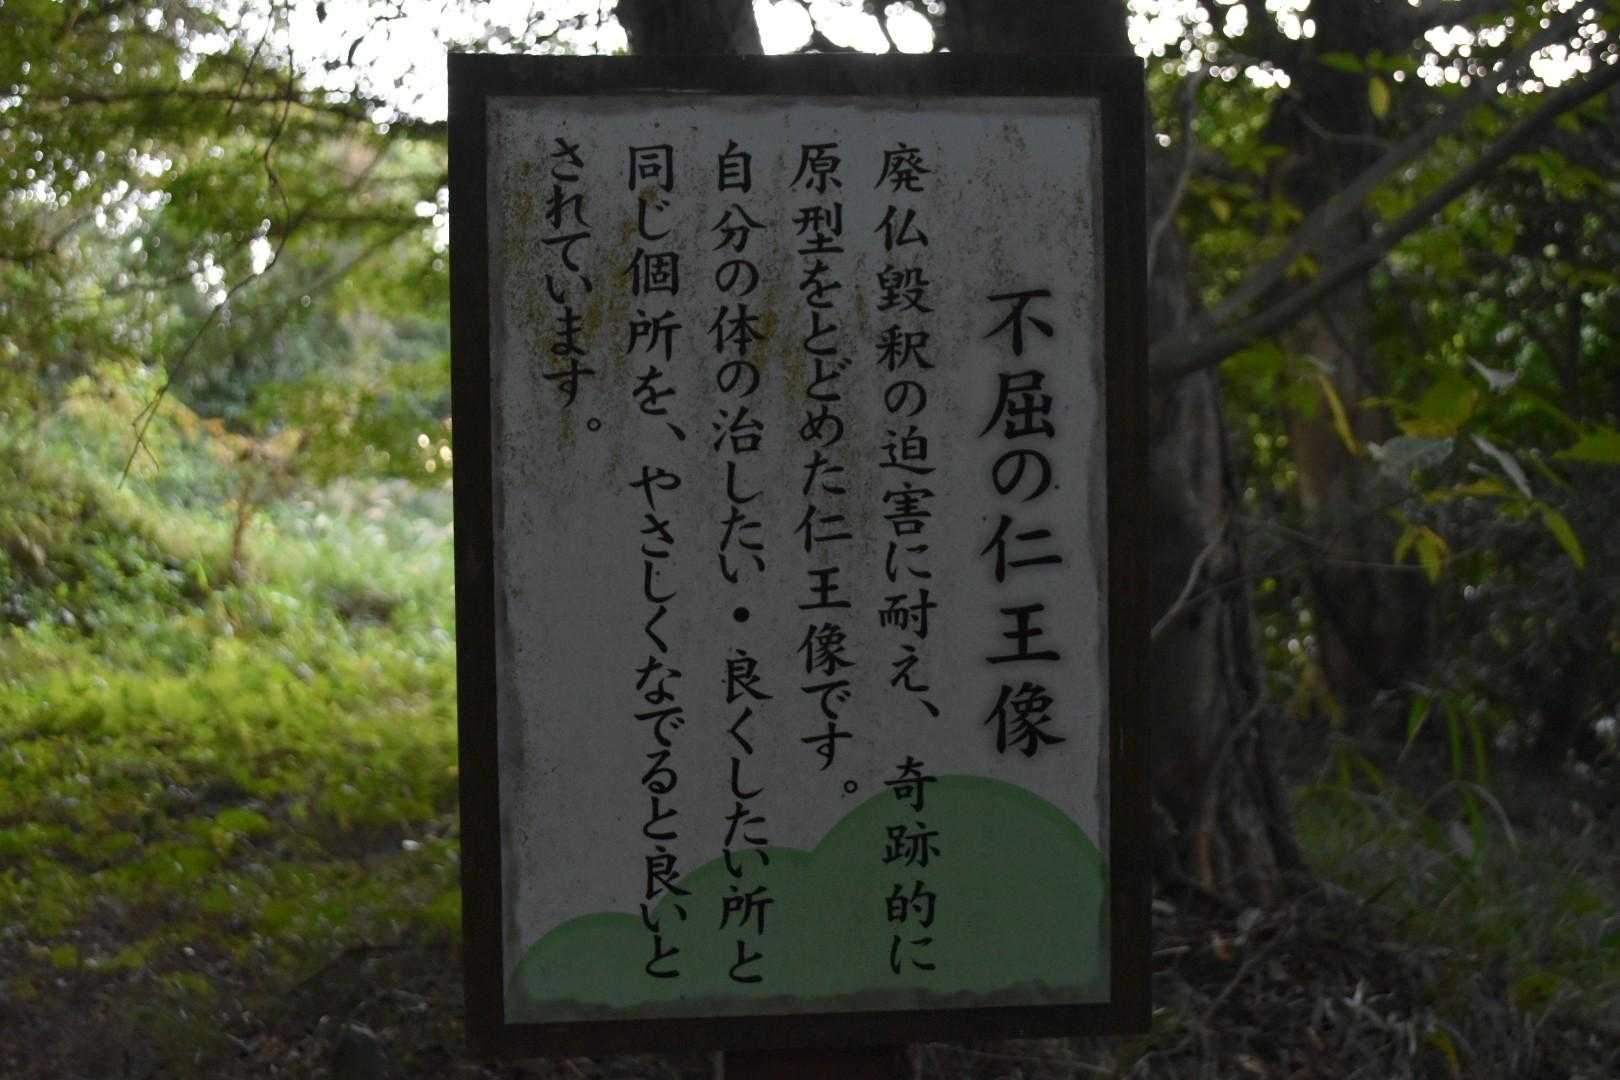 不屈の仁王像
廃仏毀釈の迫害に耐え、奇跡的に
原型をとどめた仁王像です。
自分の体の治したい・良くしたい所と
同じ個所を、やさしくなでると良いと
されています。